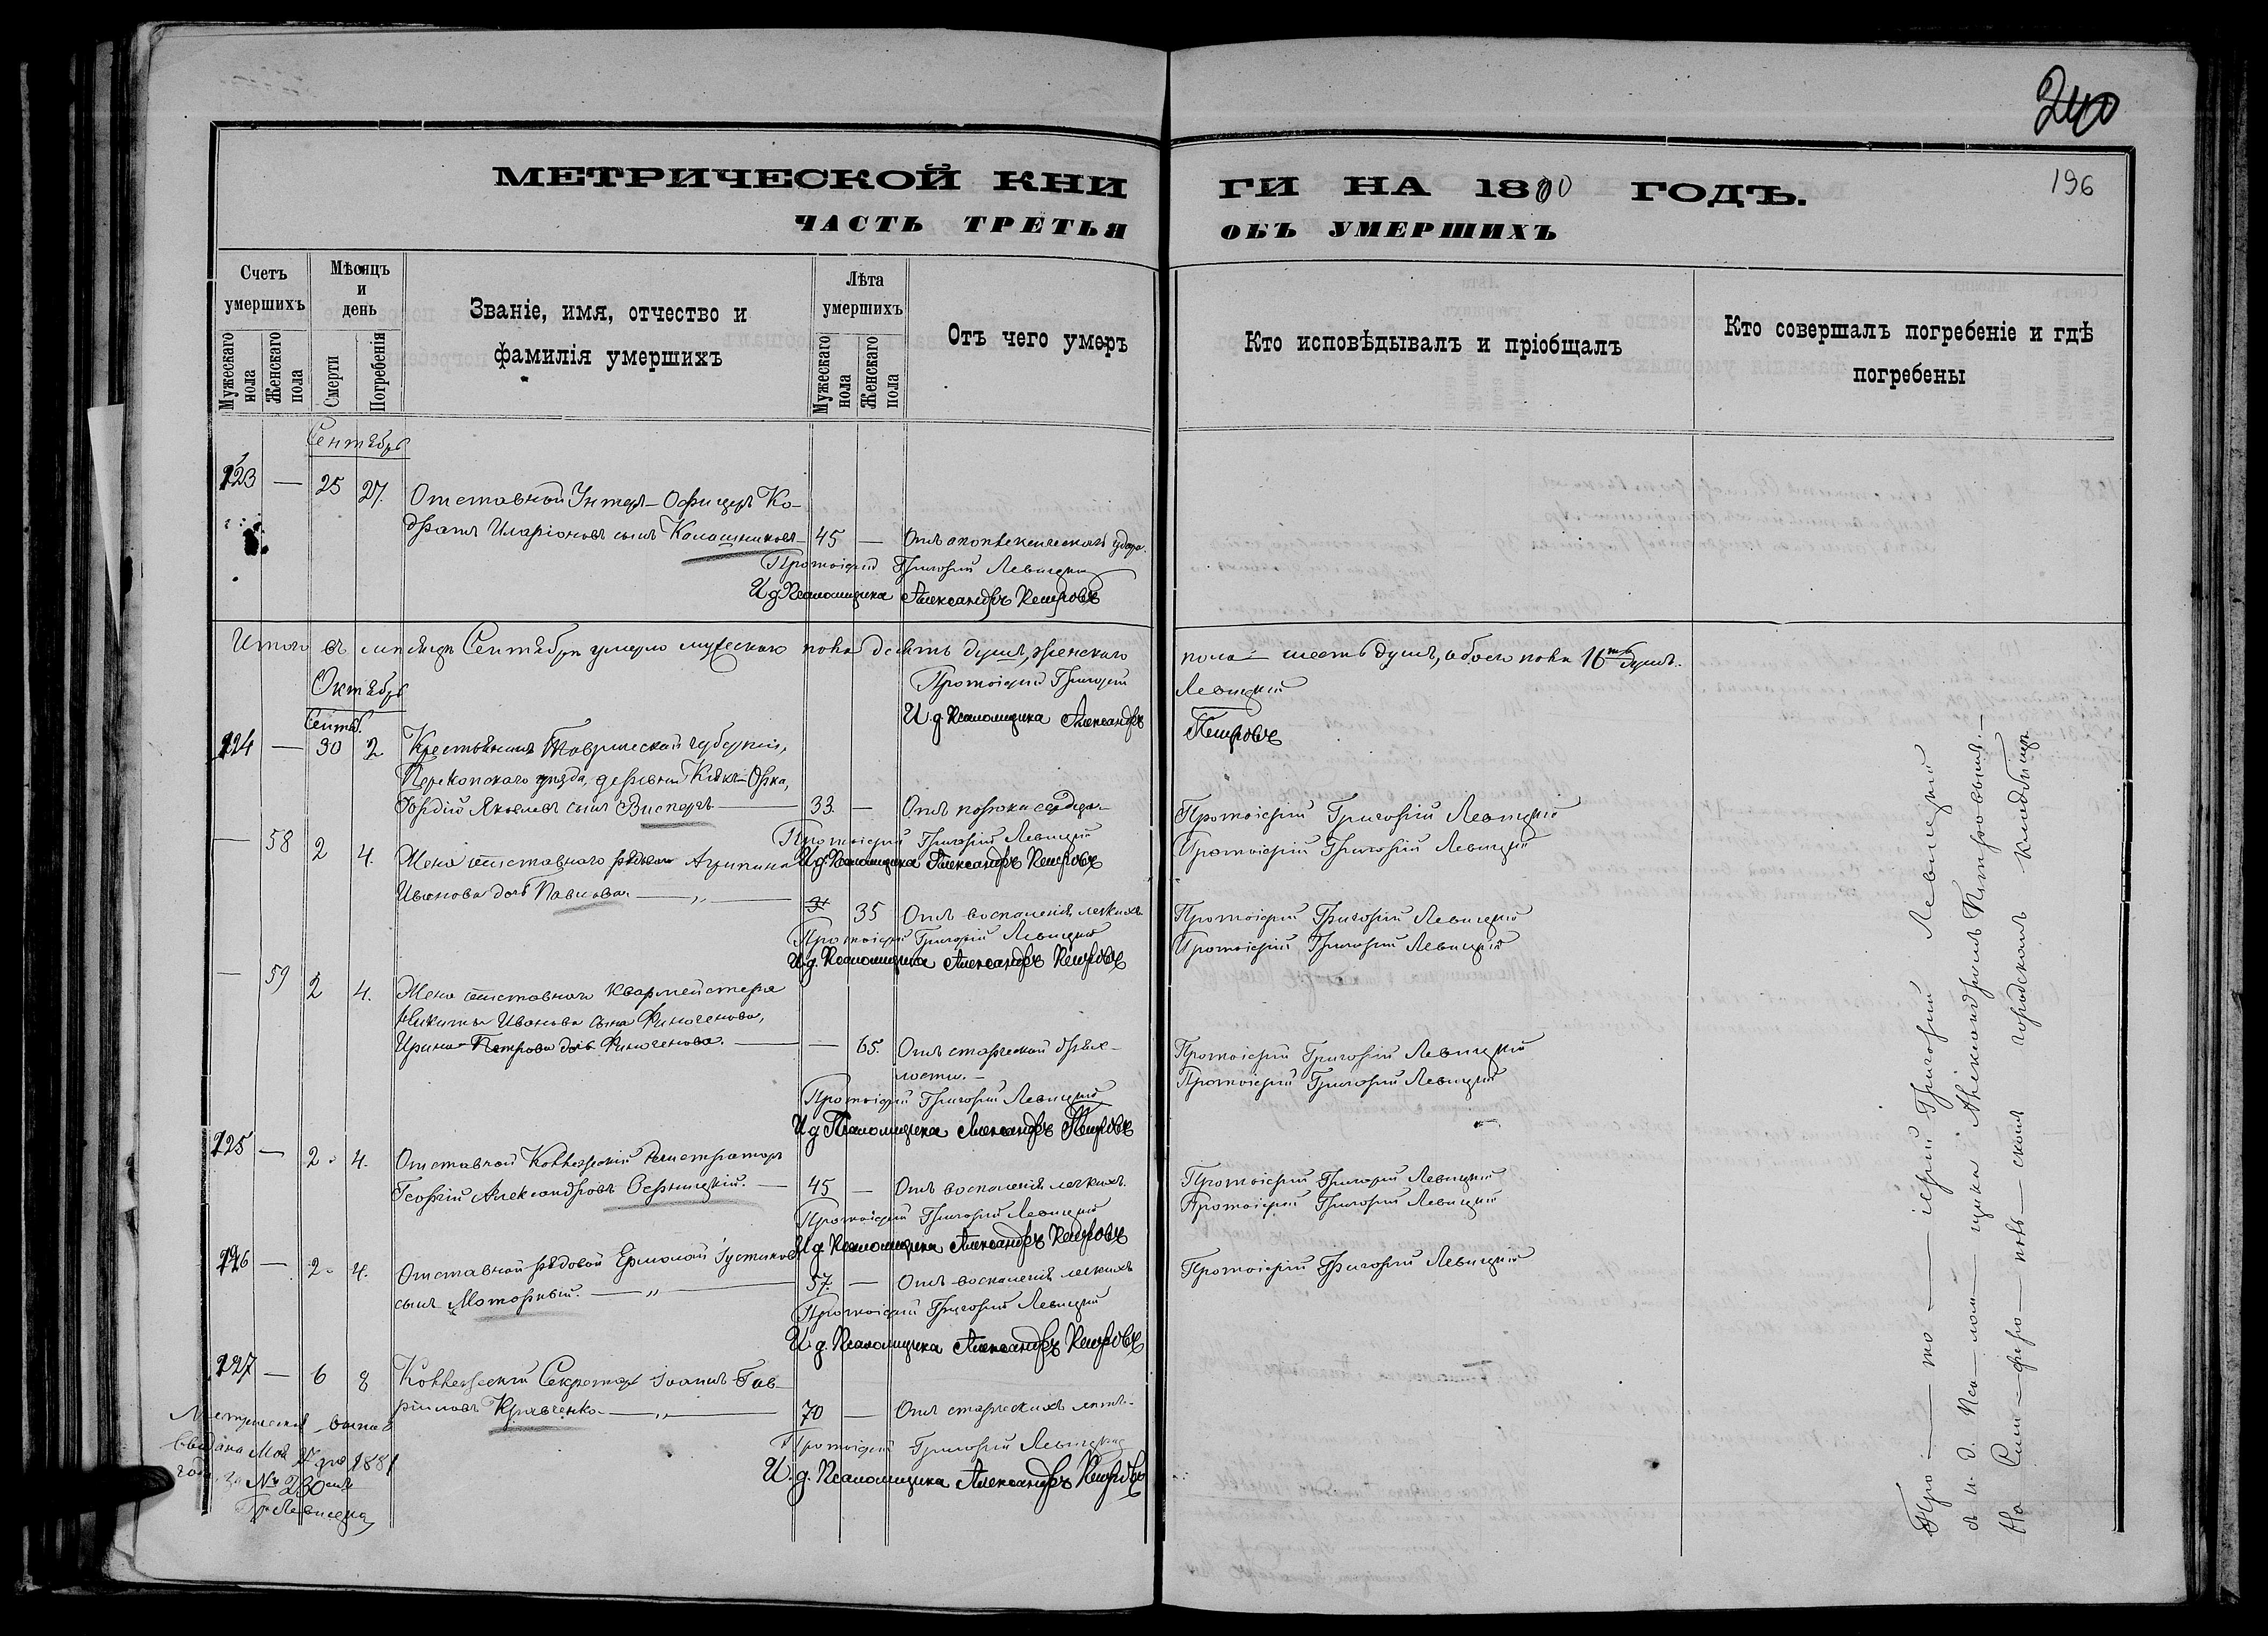 240
196
МЕТРИЧЕСКОЙ КНИ ГИ НА 1880 ГОДЪ.
ЧАСТЬ ТРЕТЬЯ ОБЪ УМЕРШИХЪ
Счетъ умершихъ
Мужескаго пола
Женскаго пола
Мѣсяцъ и день
Смерти
Погребенія
Званіе, имя, отчество и фамилія умершихъ
Лѣта умершихъ
Мужескаго пола
Женскаго пола
Отъ чего умеръ
Кто исповѣдывалъ и пріобщалъ
Кто совершалъ погребеніе и гдѣ погребены
Сентябрь
123 — 25 27. Отставной Унтеръ-Офицеръ Ко-
дратъ Иларіоновъ сынъ Калашниковъ 45 — Отъ апоплексическаго удара.
Протоіерей Григорій Левицкій
И д Псаломщика Александръ Петровъ
Итого въ мѣсяцѣ Сентябрѣ умерло мужескаго пола десять душъ, женскаго пола шесть душъ, обоего пола 16ть душъ.
Октябрь
Протоіерей Григорій Левицкій
И д Псаломщика Александръ Петровъ
Сентяб.
124 — 30 2 Крестьянинъ Таврической губерніи,
Перекопскаго уѣзда, деревни Кіякъ-Орка,
Гордій Яковлевъ сынъ 33 — Отъ порока сердца
Протоіерей Григорій Левицкій
И д. Псаломщика Александръ Петровъ
Протоіерей Григорій Левицкій
— 58 2 4. Жена отставного рядового Агрипина
Иванова дочь Павлова — „ — 35 Отъ воспаленія легкихъ
Протоіерей Григорій Левицкій
И д. Псаломщика Александръ Петровъ
Протоіерей Григорій Левицкій
Протоіерей Григорій Левицкій
Протоіерей Григорій Левицкій
— 59 2 4. Жена отставного Квартмейстера
Никиты Иванова сына Финогенова,
Ирина Петрова дочь Финогенова. — — 65. Отъ старческой дрях-
лости.
Протоіерей Григорій Левицкій
И д Псаломщика Александръ Петровъ
Протоіерей Григорій Левицкій
Протоіерей Григорій Левицкій
125 — 2 4. Отставной Коллежскій Регистраторъ
Георгій Александровъ 45 — Отъ воспаленія легкихъ.
Протоіерей Григорій Левицкій
И д. Псаломщика Александръ Петровъ
Протоіерей Григорій Левицкій
Протоіерей Григорій Левицкій
126 — 2 4. Отставной рядовой Ермолай Іустиновъ
сынъ Моторный. — „ — 57. — Отъ воспаленія легкихъ
Протоіерей Григорій Левицкій
И д. Псаломщика Александръ Петровъ
Протоіерей Григорій Левицкій
127 — 6 8 Коллежскій Секретарь Іоаннъ Гав-
ріиловъ Кравченко — „ — 70 — Отъ старческихъ лѣтъ.
Протоіерей Григорій Левицкій
И. д. Псаломщика Александръ Петровъ
выдана Мая 27 дня 1881
года, за № 230
Гр Левицкій
Про — то — іерей Григорій Левицкій
съ и. д. Пса — лом — щика Александромъ Петровымъ.
На Сим — феро — поль — скомъ городскомъ кладбищѣ